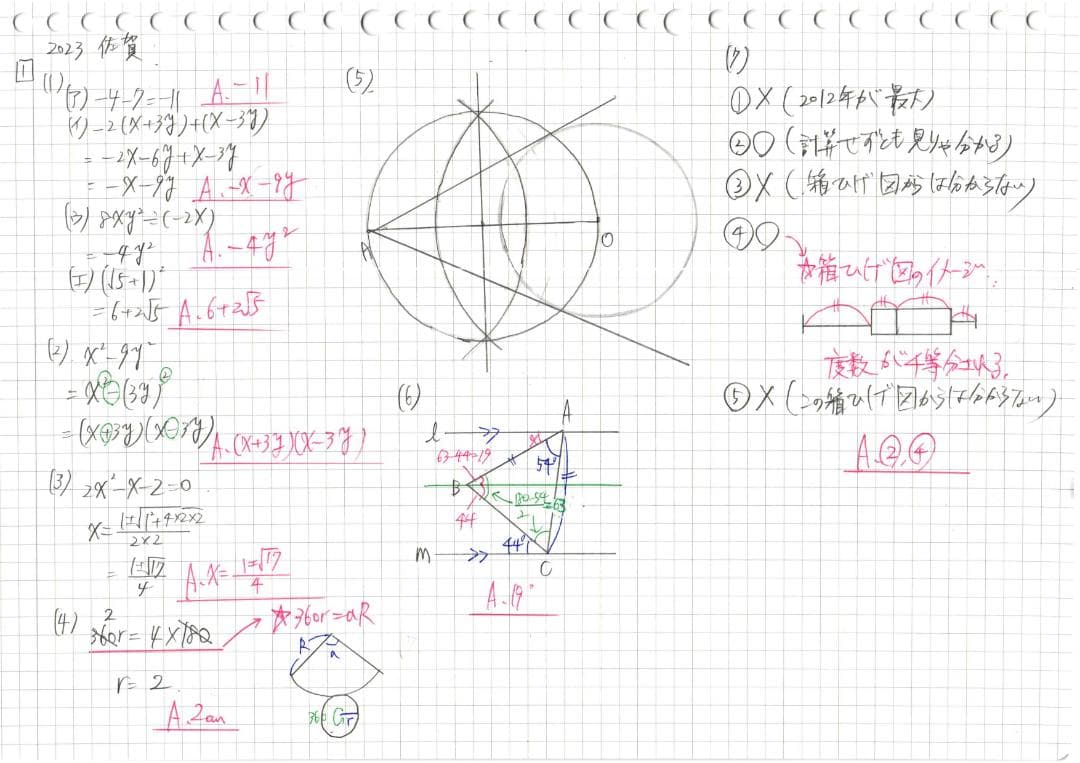 2023 佐賀
1
(1)
(ア) -4-7=-11 A. -11
(イ) -2(x+3y)+(x-3y)
= -2x-6y+x-3y
= -x-9y A. -x-9y
(ウ) 8xy²÷(-2x)
= -4y² A. -4y²
(エ) (√5+1)²
= 6+2√5 A. 6+2√5
(2) x²-9y²
= x²-(3y)²
= (x+3y)(x-3y) A. (x+3y)(x-3y)
(3) 2x²-x-2=0
x= 1±√1²+4×2×2 / 2×2
= 1±√17 / 4 A. x= 1±√17 / 4
(4) 2
360r=4×180 ☆360r=aR
r=2
A. 2cm
R a
360 r
(5)
A O
(6)
A
l
63-44=19 x 54°
B 180-54 / 2 =63
44
44°
m C
A. 19°
(7)
① X (2012年が最大)
② ○ (計算せずとも見りゃ分かる)
③ X (箱ひげ図からは分からない)
④ ○
☆箱ひげ図のイメージ:
度数が4等分される.
⑤ X (この箱ひげ図からは分からない)
A. ②,④